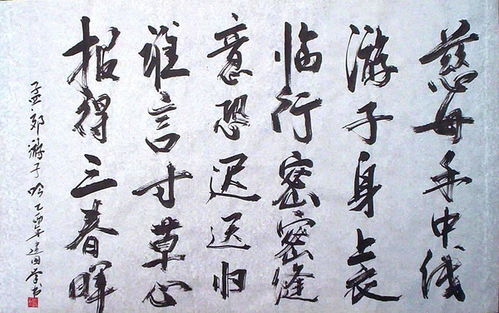 慈母手中线
游子身上衣
临行密密缝
意恐迟迟归
谁言寸草心
报得三春晖
孟郊游子吟乙酉年建国学书